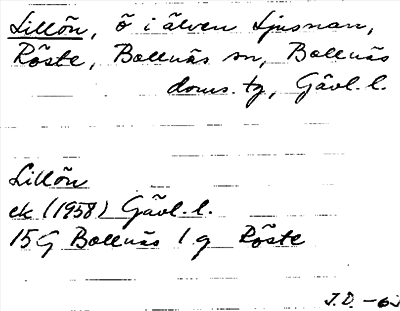 Lillön, ö i älven Ljusnan,
Röste, Bollnäs sn, Bollnäs
doms. tg, Gävl. l.
Lillön
ek (1958) Gävl. l.
15G Bollnäs 1 g Röste
J.D. -63